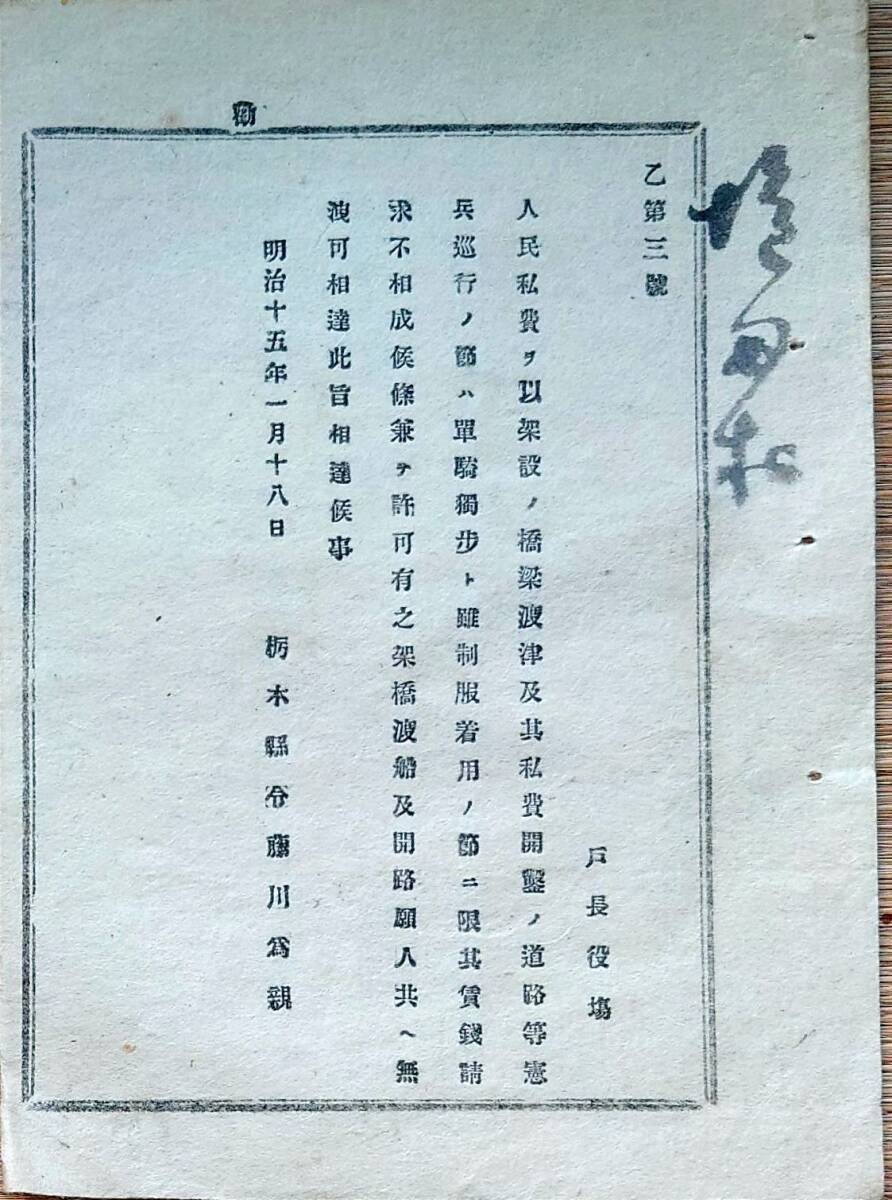 乙第三號
戸長役塲
人民私費ヲ以架設ノ橋梁渡津及其私費開鑿ノ道路等憲
兵巡行ノ節ハ單騎獨步ト雖制服着用ノ節ニ限其賃錢請
求不相成候條兼テ許可有之架橋渡船及開路願人共ヘ無
洩可相達此旨相達候事
明治十五年一月十八日
栃木縣令藤川爲親